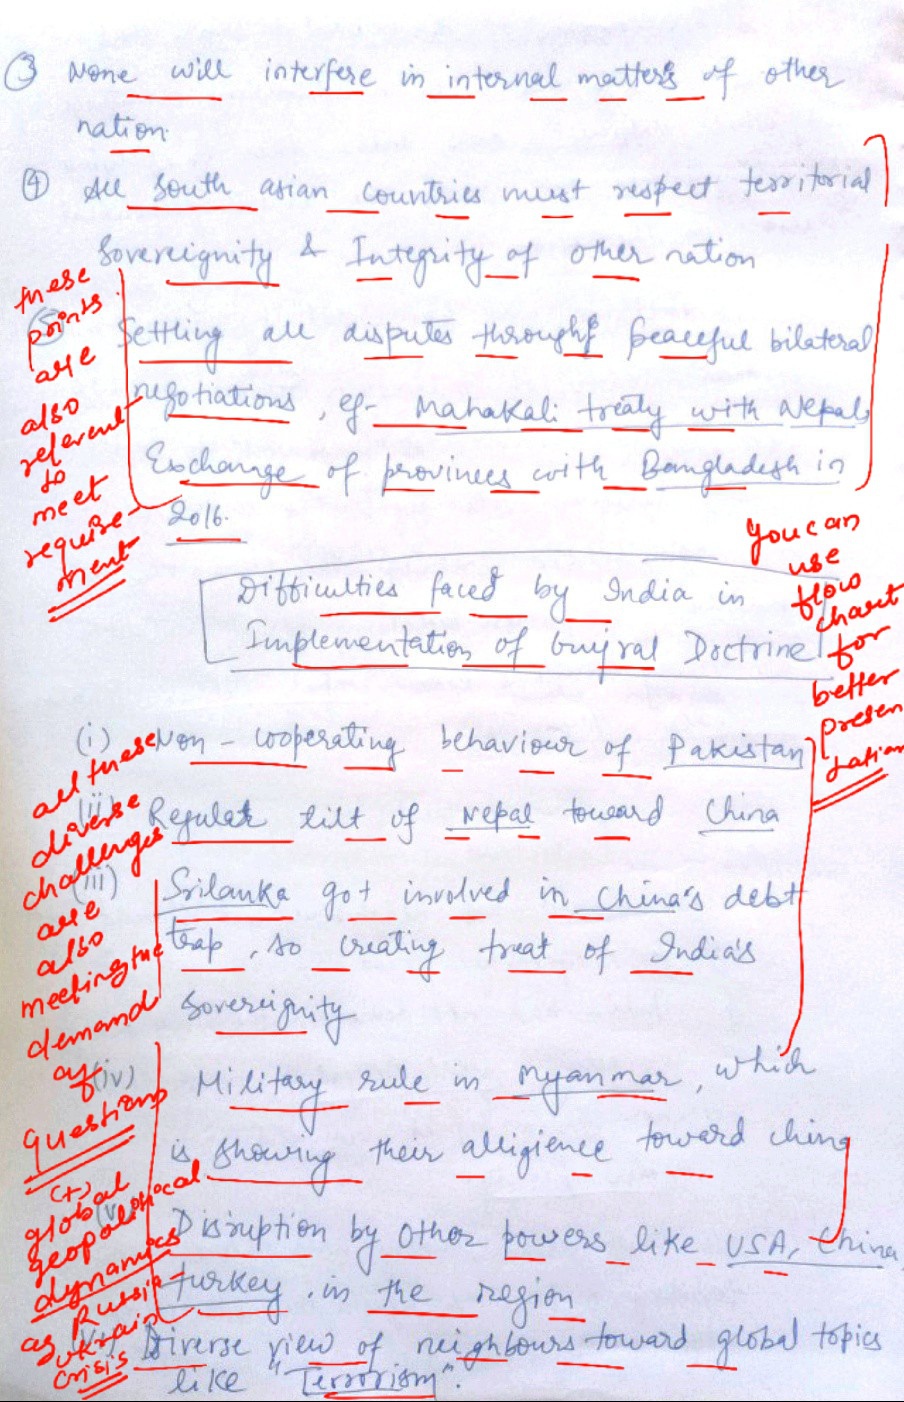 ③ None will interfere in internal matters of other
nation.
④ All South asian countries must respect territorial
Sovereignity & Integrity of other nation
these
points
are
also
relevent
to
meet
require-
ment
(5) Settling all disputes through peaceful bilateral
negotiations, eg- Mahakali treaty with Nepal,
Exchange of provinces with Bangladesh in
2016.
You can
use
flow
chart
for
better
presen
tation
Difficulties faced by India in
Implementation of Gujral Doctrine
(i) Non-cooperating behaviour of Pakistan
(ii) Regular tilt of Nepal toward China
(iii) Srilanka got involved in China's debt
trap, so creating treat of India's
Sovereignity
all these
diverse
challenges
are
also
meeting the
demand
of
questions
(iv) Military rule in Myanmar, which
is showing their alligience toward China
(v) Disruption by other powers like USA, China
turkey in the region
(+)
global
geopolitical
dynamics
as Russia-
ukrain
crisis
(vi) Diverse view of neighbours toward global topics
like "Terrorism".